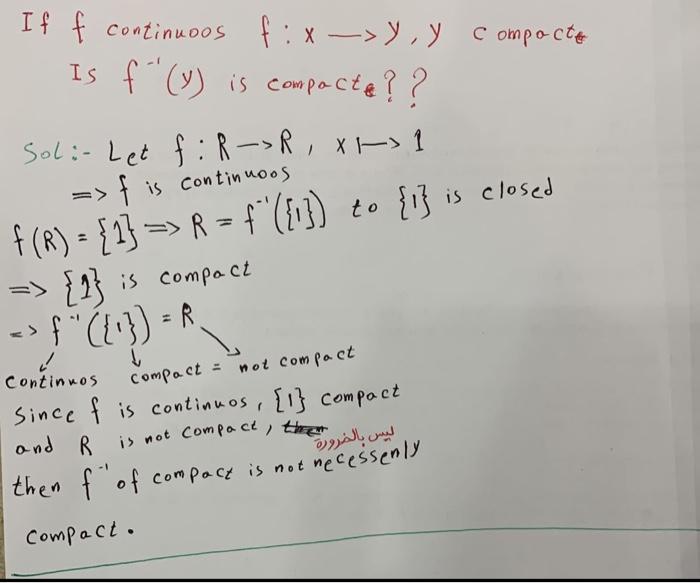 If f continuoos f : x —> y , y compacte
Is f⁻¹(y) is compacte??
Sol:- Let f : R —> R , x ↦ 1
=> f is continuoos
f(R) = {1} => R = f⁻¹({1}) to {1} is closed
=> {1} is compact
=> f⁻¹({1}) = R
continuos compact = not compact
Since f is continuos, {1} compact
and R is not compact, then
ليس بالضرورة
then f⁻¹ of compact is not necessenly
compact.